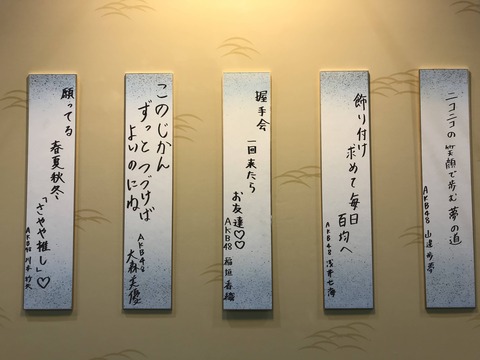 ニコニコの笑顔で歩む夢の道
AKB48 山邊歩夢
飾り付け
求めて毎日
百均へ
AKB48 浅井七海
握手会
一回来たら
お友達♡♡
AKB48 稲垣香織
このじかん
ずっとつづけば
よいのにね
AKB48 大森美優
願ってる
春夏秋冬、
「さやや推し」♡
AKB48 川本紗矢